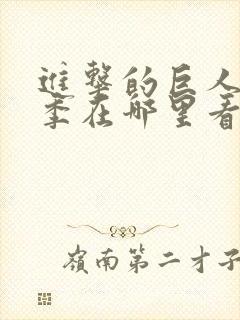 進撃的巨人
季在哪里看
嶺南第二才子